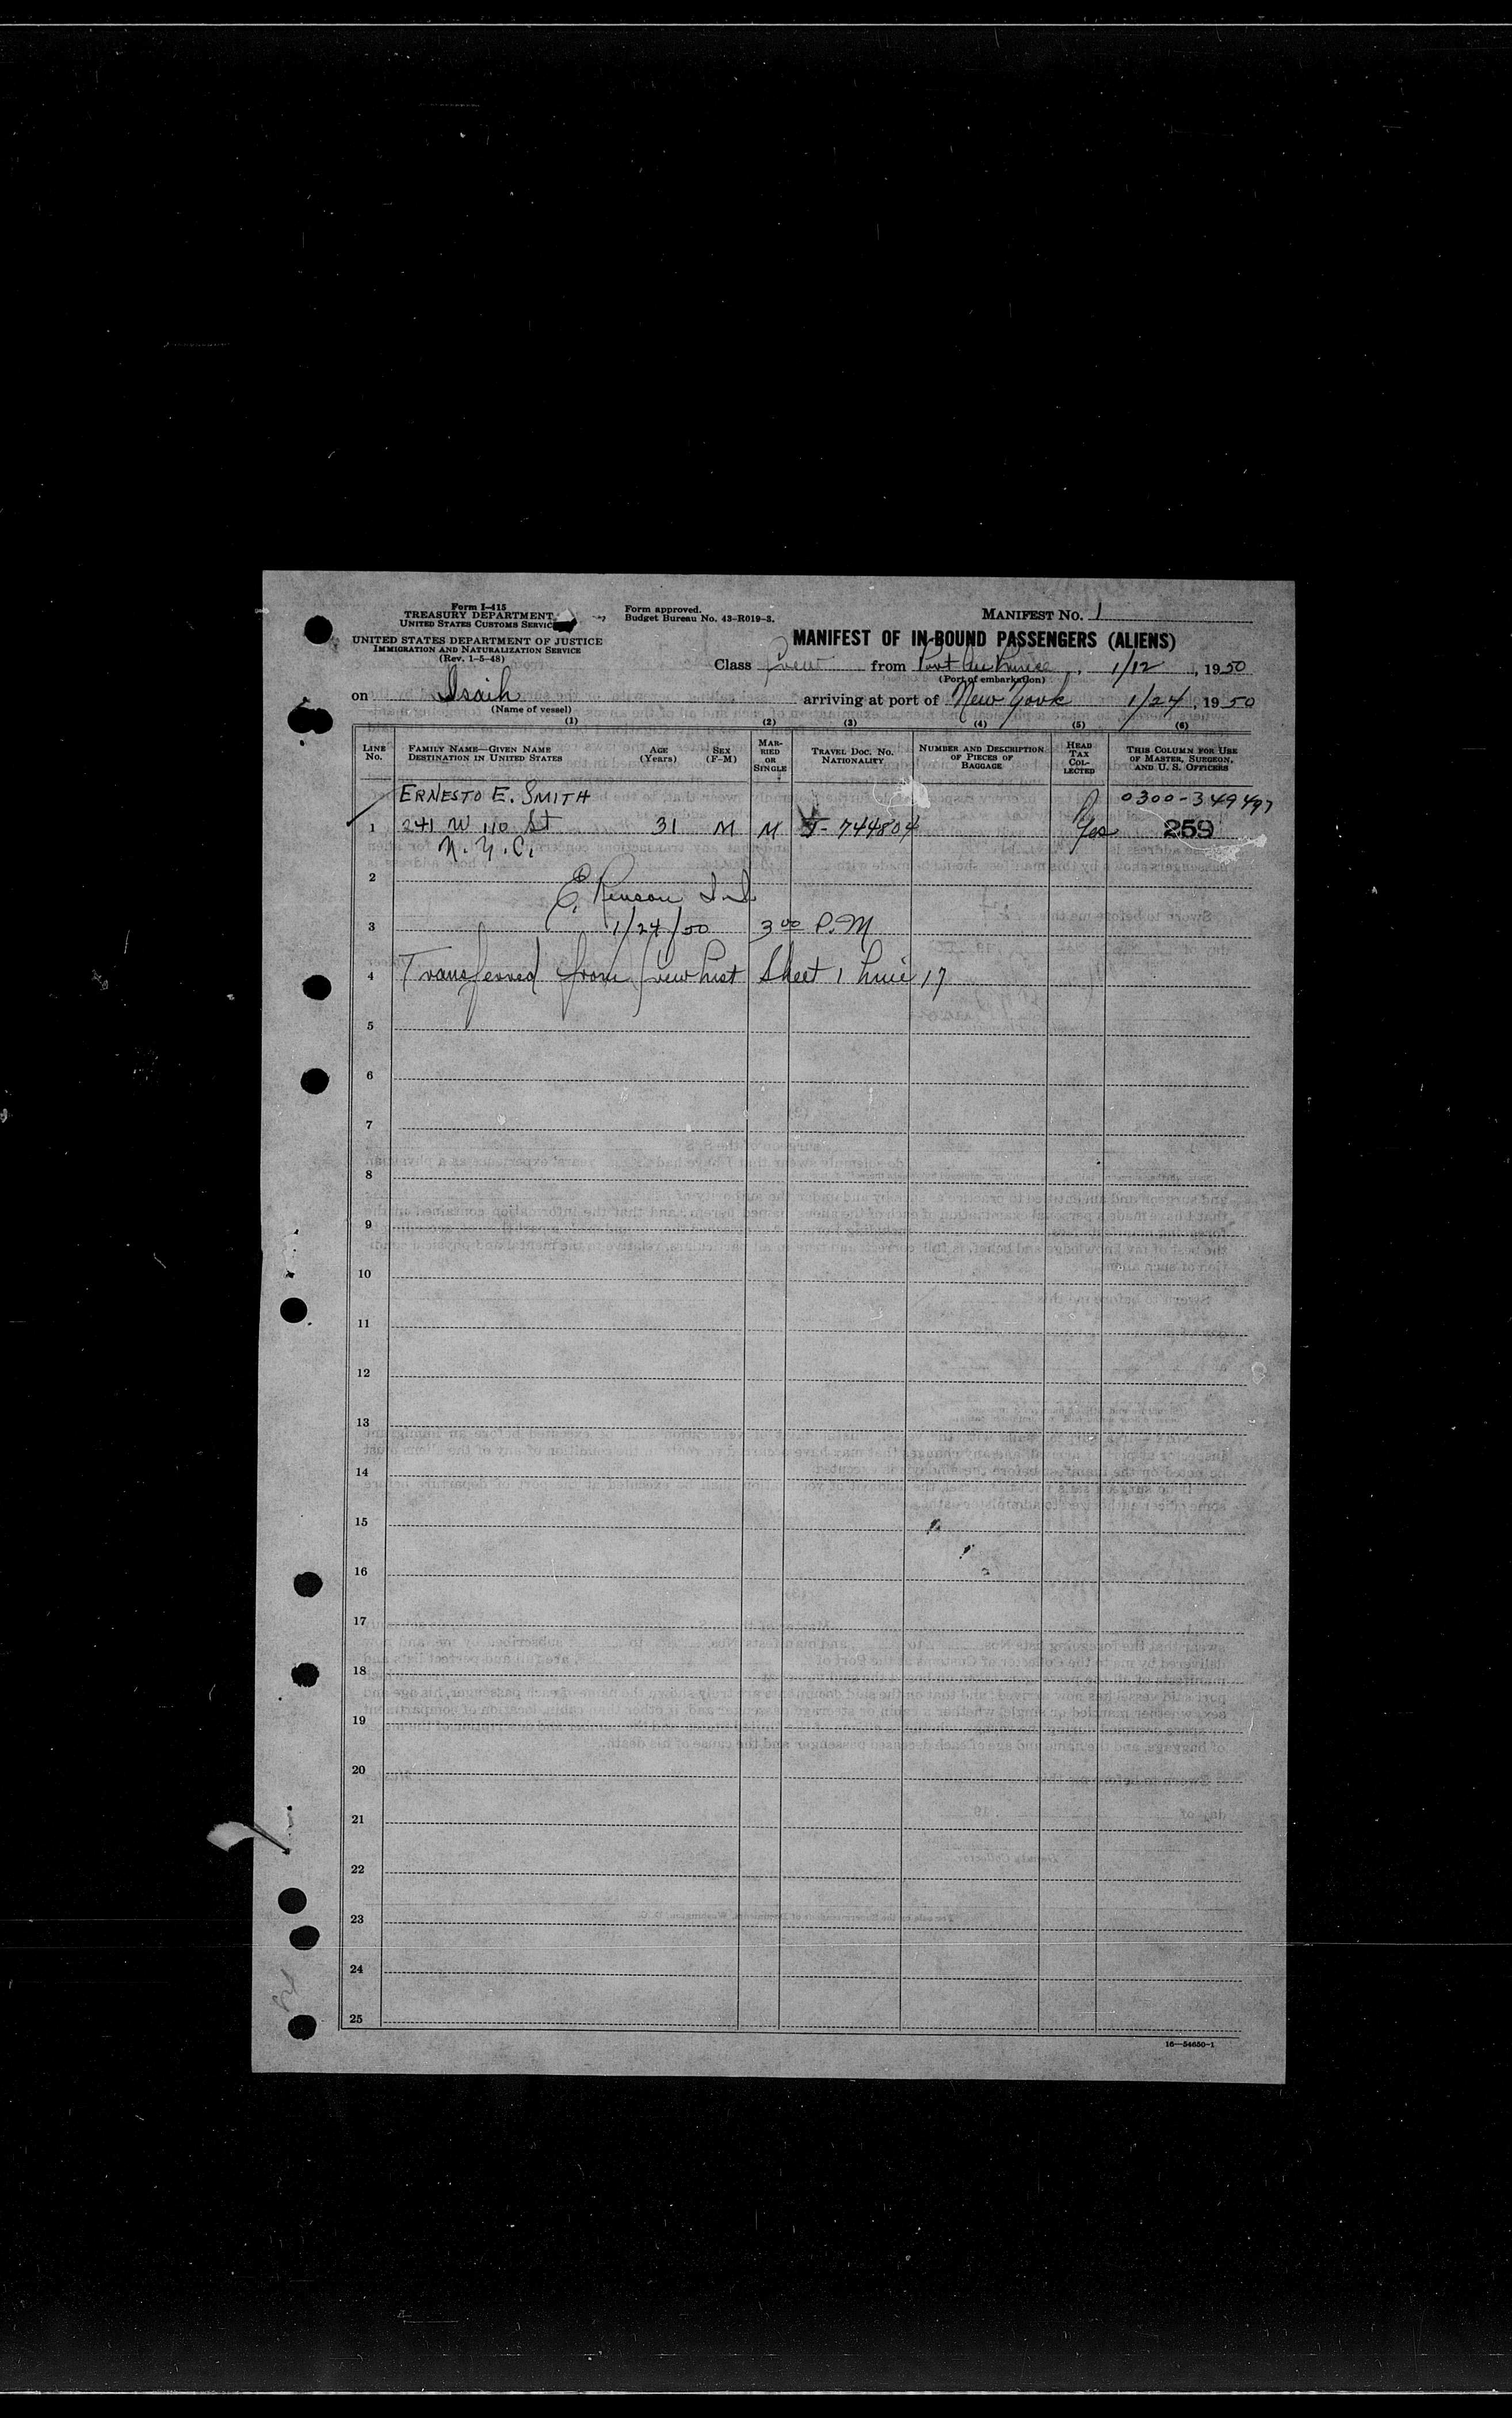 Form I-415
TREASURY DEPARTMENT
UNITED STATES CUSTOMS SERVICE
UNITED STATES DEPARTMENT OF JUSTICE
IMMIGRATION AND NATURALIZATION SERVICE
(Rev. 1-5-48)
Form approved.
Budget Bureau No. 43-R019-3.
MANIFEST NO. 1
MANIFEST OF IN-BOUND PASSENGERS (ALIENS)
Class Crew from Port au Prince, 1/12, 1950
(Port of embarkation)
on Isaih arriving at port of New York 1/24, 1950
(Name of vessel)
(1) (2) (3) (4) (5) (6)
LINE No. FAMILY NAME—GIVEN NAME DESTINATION IN UNITED STATES AGE (Years) SEX (F-M) MARRIED OR SINGLE TRAVEL DOC. NO. NATIONALITY NUMBER AND DESCRIPTION OF PIECES OF BAGGAGE HEAD TAX COLLECTED THIS COLUMN FOR USE OF MASTER, SURGEON, AND U. S. OFFICERS
ERNESTO E. SMITH 0300-349497
1 241 W 110 St 31 M M 744804 Yes 259
N.Y.C.
2
3 1/24/50 3 00 P.M
4 Transferred from Crew List Sheet 1 Line 17
5
6
7
8
9
10
11
12
13
14
15
16
17
18
19
20
21
22
23
24
25
16—54650-1